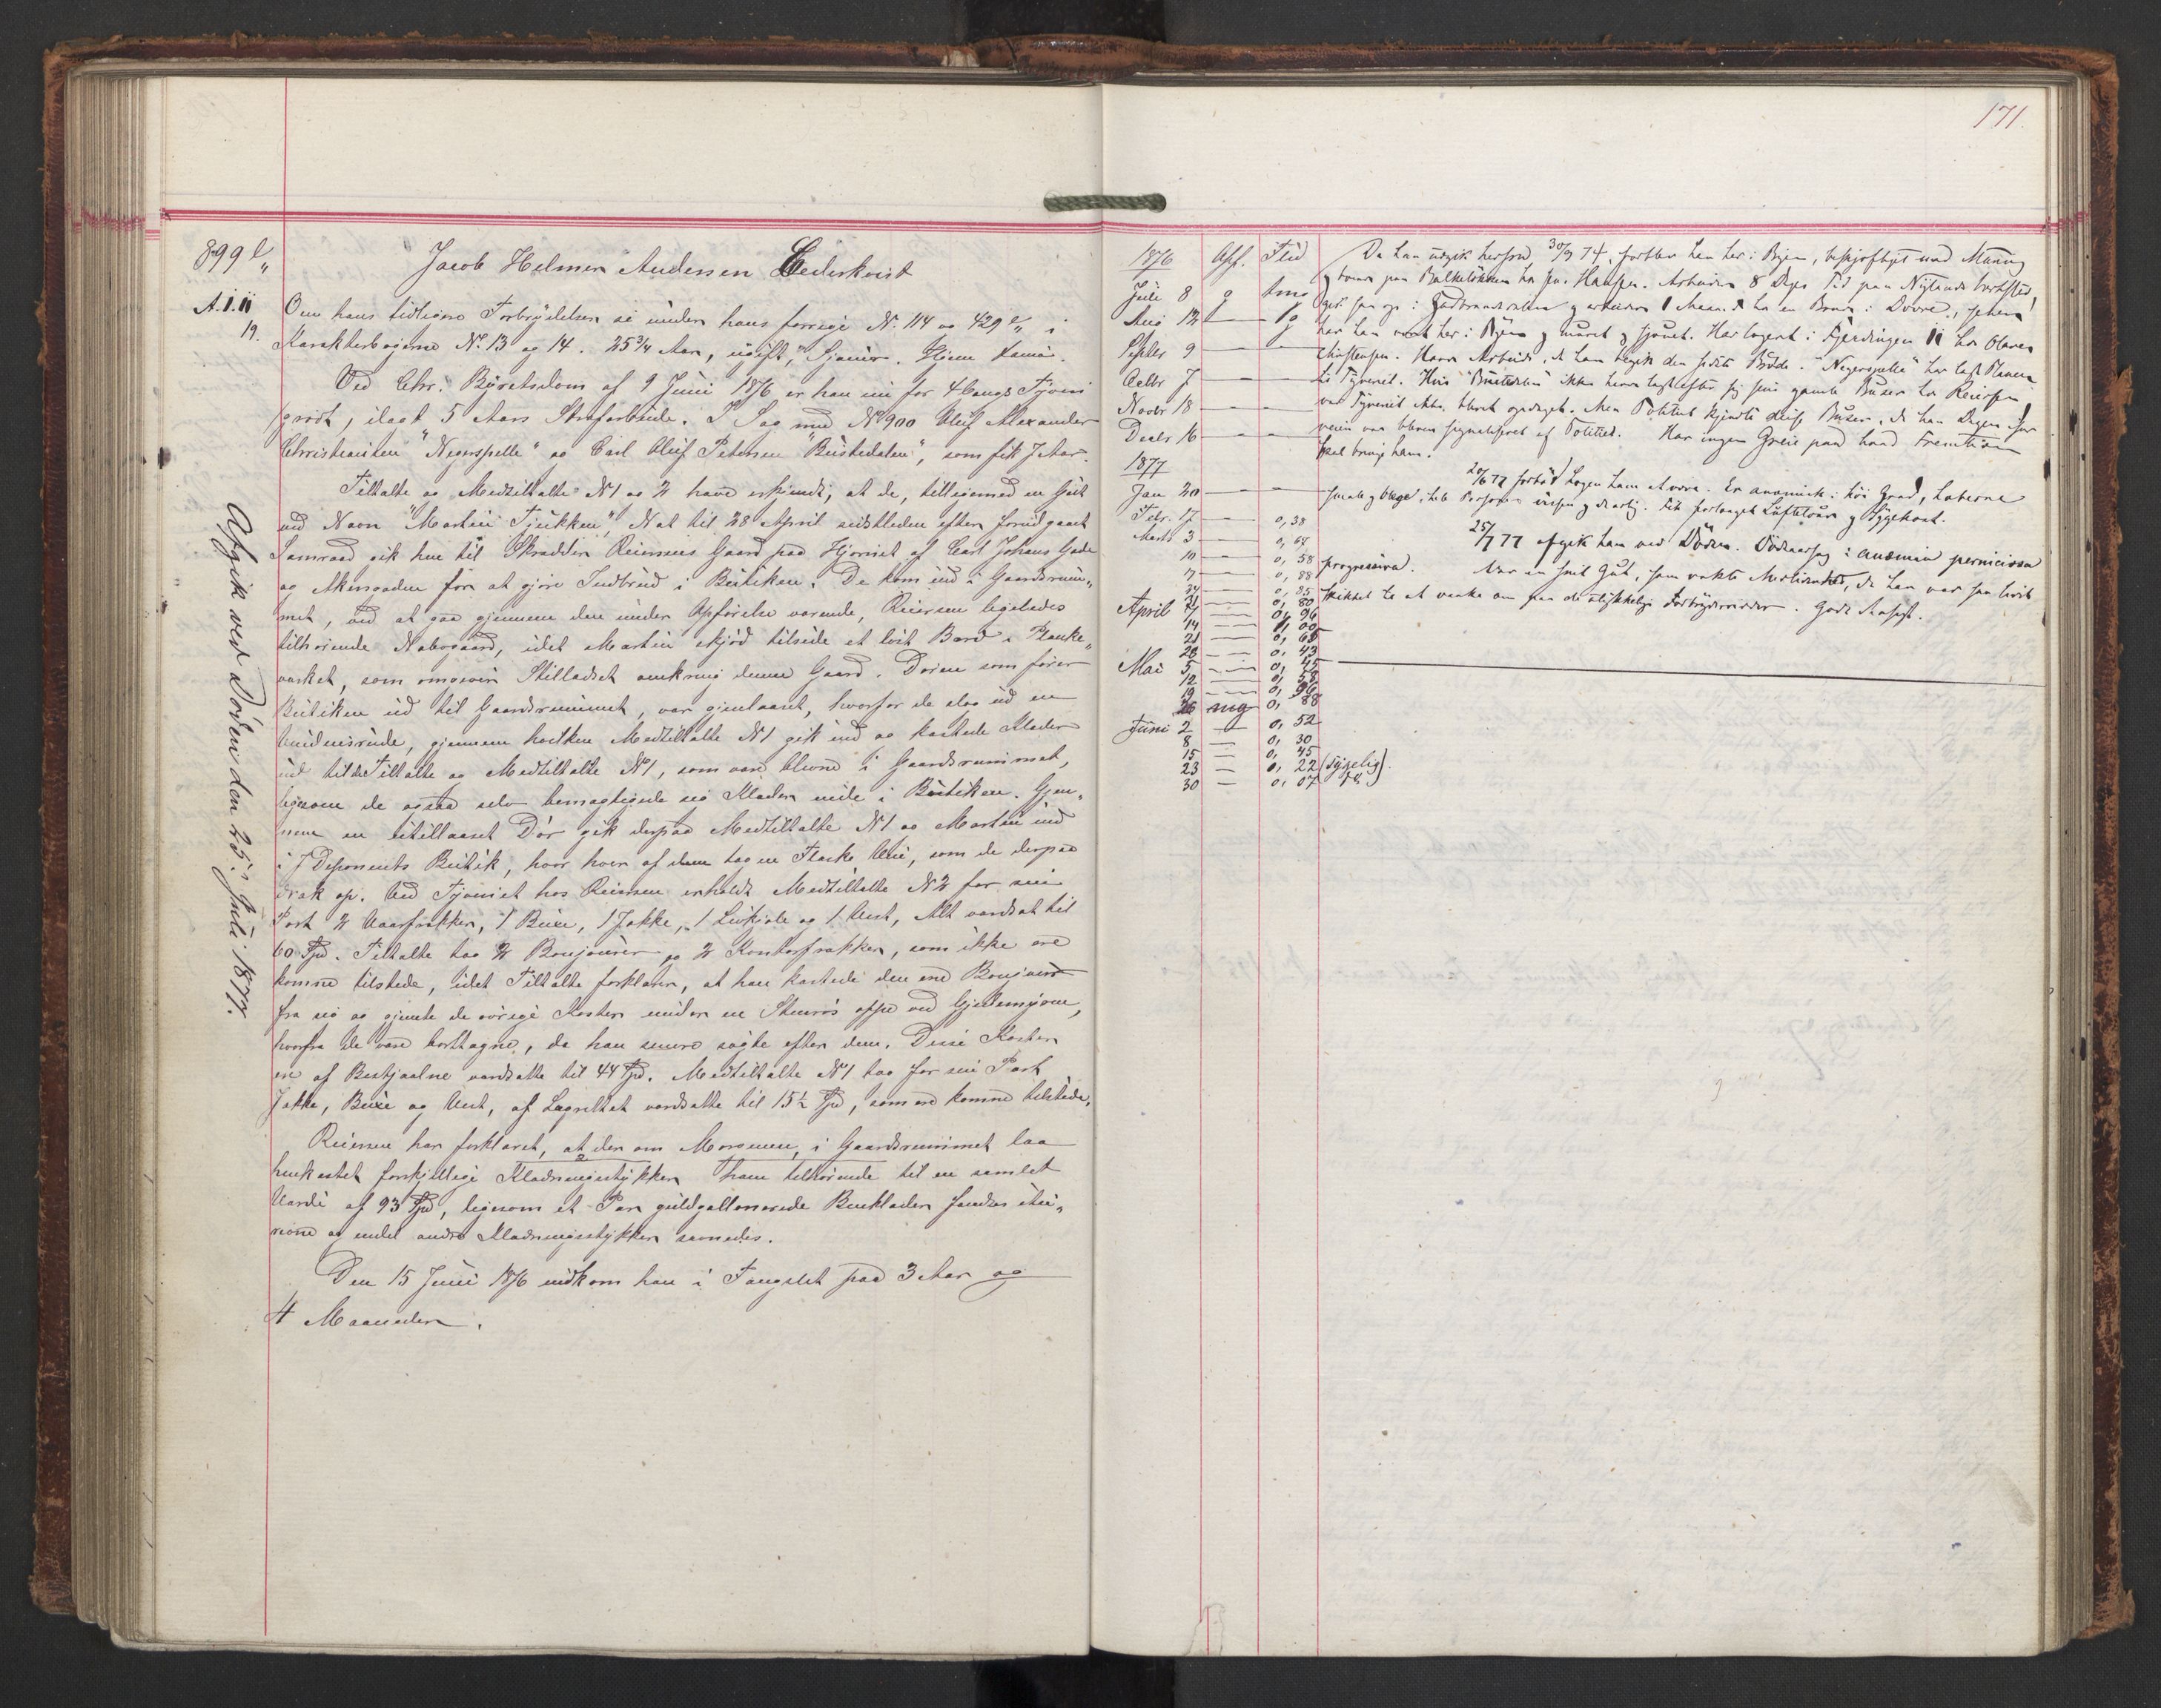 171.
899 e/„
Jacob Helmer Andersen Cederkvist
A. i. ii
19.
Om hans tidligere Forbrydelser se under hans forrige No. 114 og 429 e/„ i
Karakterbøgerne No. 13 og 14. 25 3/4 Aar, ugift, Sjauer. Hjem samme.
Ved Chr: Byretsdom af 9 Juni 1876 er han nu for 4 Gangs Tyveri
grovt, ilagt 5 Aars Strafarbeide. I Sag med No 900 Oluf Alexander
Christiansen "Negerpelle" og Carl Oluf Petersen "Bustedalen", som fik 7 Aar.
Tiltalte og Medtiltalte No 1 og 2 have erkjendt, at de, tilligemed en Gut
ved Navn "Martin Tjukken", Nat til 28 April sidstleden efter forudgaaet
Samraad gik hen til Skrædder Reiersens Gaard paa Hjørnet af Carl Johans Gade
og Akersgaden for at gjøre Indbrud i Butiken. De kom ind i Gaardsrum„
met, ved at gaa gjennem den under Opførelse værende, Reiersen ligeledes
tilhørende Nabogaard, idet Martin skjød tilside et løst Bord i Planke„
værket, som omgiver Stilladset omkring denne Gaard. Døren som fører
Butiken ud til Gaardsrummet, var gjenlaaset, hvorfor de slog ud en
Vinduesrude, gjennem hvilken Medtiltalte No 1 gik ind og kastede Klæder
ud til de Tiltalte og Medtiltalte No 1, som vare blevne i Gaardsrummet,
ligesom de ogsaa selv bemægtigede sig Klæder inde i Butiken. Gjen„
nem en utillaaset Dør gik derpaa Medtiltalte No 1 og Martin ind
i 7 Deponents Butik, hvor hver af dem tog en Flaske Vin, som de derpaa
drak op. Ved Tyveriet hos Reiersen erholdt Medtiltalte No 2 for sin
Part 2 Vaarfrakker, 1 Buxe, 1 Jakke, 1 Livkjole og 1 Vest, Alt værdsat til
60 Spd. Tiltalte tog 2 Bonjourer og 2 Kontorfrakker, som ikke ere
komne tilstede, idet Tiltalte forklarer, at han kastede den ene Bonjour
fra sig og gjemte de øvrige Koster under en Stenrøs oppe ved
hvorfra de vare borttagne, da han senere søgte efter dem. Disse Koster
ere af Bestjaalne værdsatte til 44 Spd. Medtiltalte No 1 tog for sin Part
Jakke, Buxe og Vest, af Lagrettet værdsatte til 15 1/2 Spd, som ere komne tilstede.
Reiersen har forklaret, at der om Morgenen, i Gaardsrummet laa
henkastet forskjellige Klædningsstykker ham tilhørende til en samlet
Værdi af 93 Spd, ligesom et Par guldgallonerede Benklæder fandtes
og endel andre Klædningsstykker savnedes.
Den 15 Juni 1876 indkom han i Fængslet paa 3 Aar og
4 Maaneder.
Afgik ved Døden den 25: Juli 1877.
1876 Opf. Flid
Juli 8 g tmg
Aug 12 — g
Septbr 9 — —
Octbr 7 — —
Novbr 18 — —
Decbr 16 — —
1877
Jan 20 — —
Febr. 17 — 0,38
Marts 3 — 0,64
10 — 0,58
17 — 0,88
24 — 0,85
April 7 — 0,96
14 — 1,00
21 — 0,65
28 — 0,43
Mai 5 — 0,45
12 — 0,58
19 — 0,96
26 mg 0,88
Juni 2 — 0,52
8 — 0,30
15 — 0,45
23 — 0,22 (sygelig).
30 — 0,07
Da han udgik herfra, 30/9 74, forblev han her i Byen, beskjæftiget med Muring
og boede paa Balkeløkken hos Hansen. Arbeidede 8 Dages Tid paa Nylands Værksted,
gik saa op i Gudbrandsdalen og arbeidede 1 Maaned hos en Bonde i Dovre, senere
har han været her i Byen og muret og sjauet. Har logeret i Fjerdingen 11 hos Olaves
Christensen. Havde Arbeide, da han begik den sidste Brøde. "Negerpelle" har lagt Planen
til Tyveriet. Hvis "Bustedalen" ikke havde lagt efter sig sine gamle Buxer hos Reiersen,
var Tyveriet ikke blevet opdaget. Men Politiet kjendte disse Buxer, da han Dagen for
var bleven signaliseret af Politiet. Har ingen Greie paa hvad Fremtiden
skal bringe ham.
20/6 77 Lægen ham at være. Er anæmisk i høi Grad, Læberne
smale og blege, hele Personen Fik forlænget Lufttour og Sygekost.
25/7 77 afgik han ved Døden. Dødsaarsag: anæmia perniciosa
progressiva. Var en snil Gut, som vakte Medlidenhed, da han var saa lidet
skikket til at vække om paa de ulykkelige Forbrydere. Godt Anlagt.